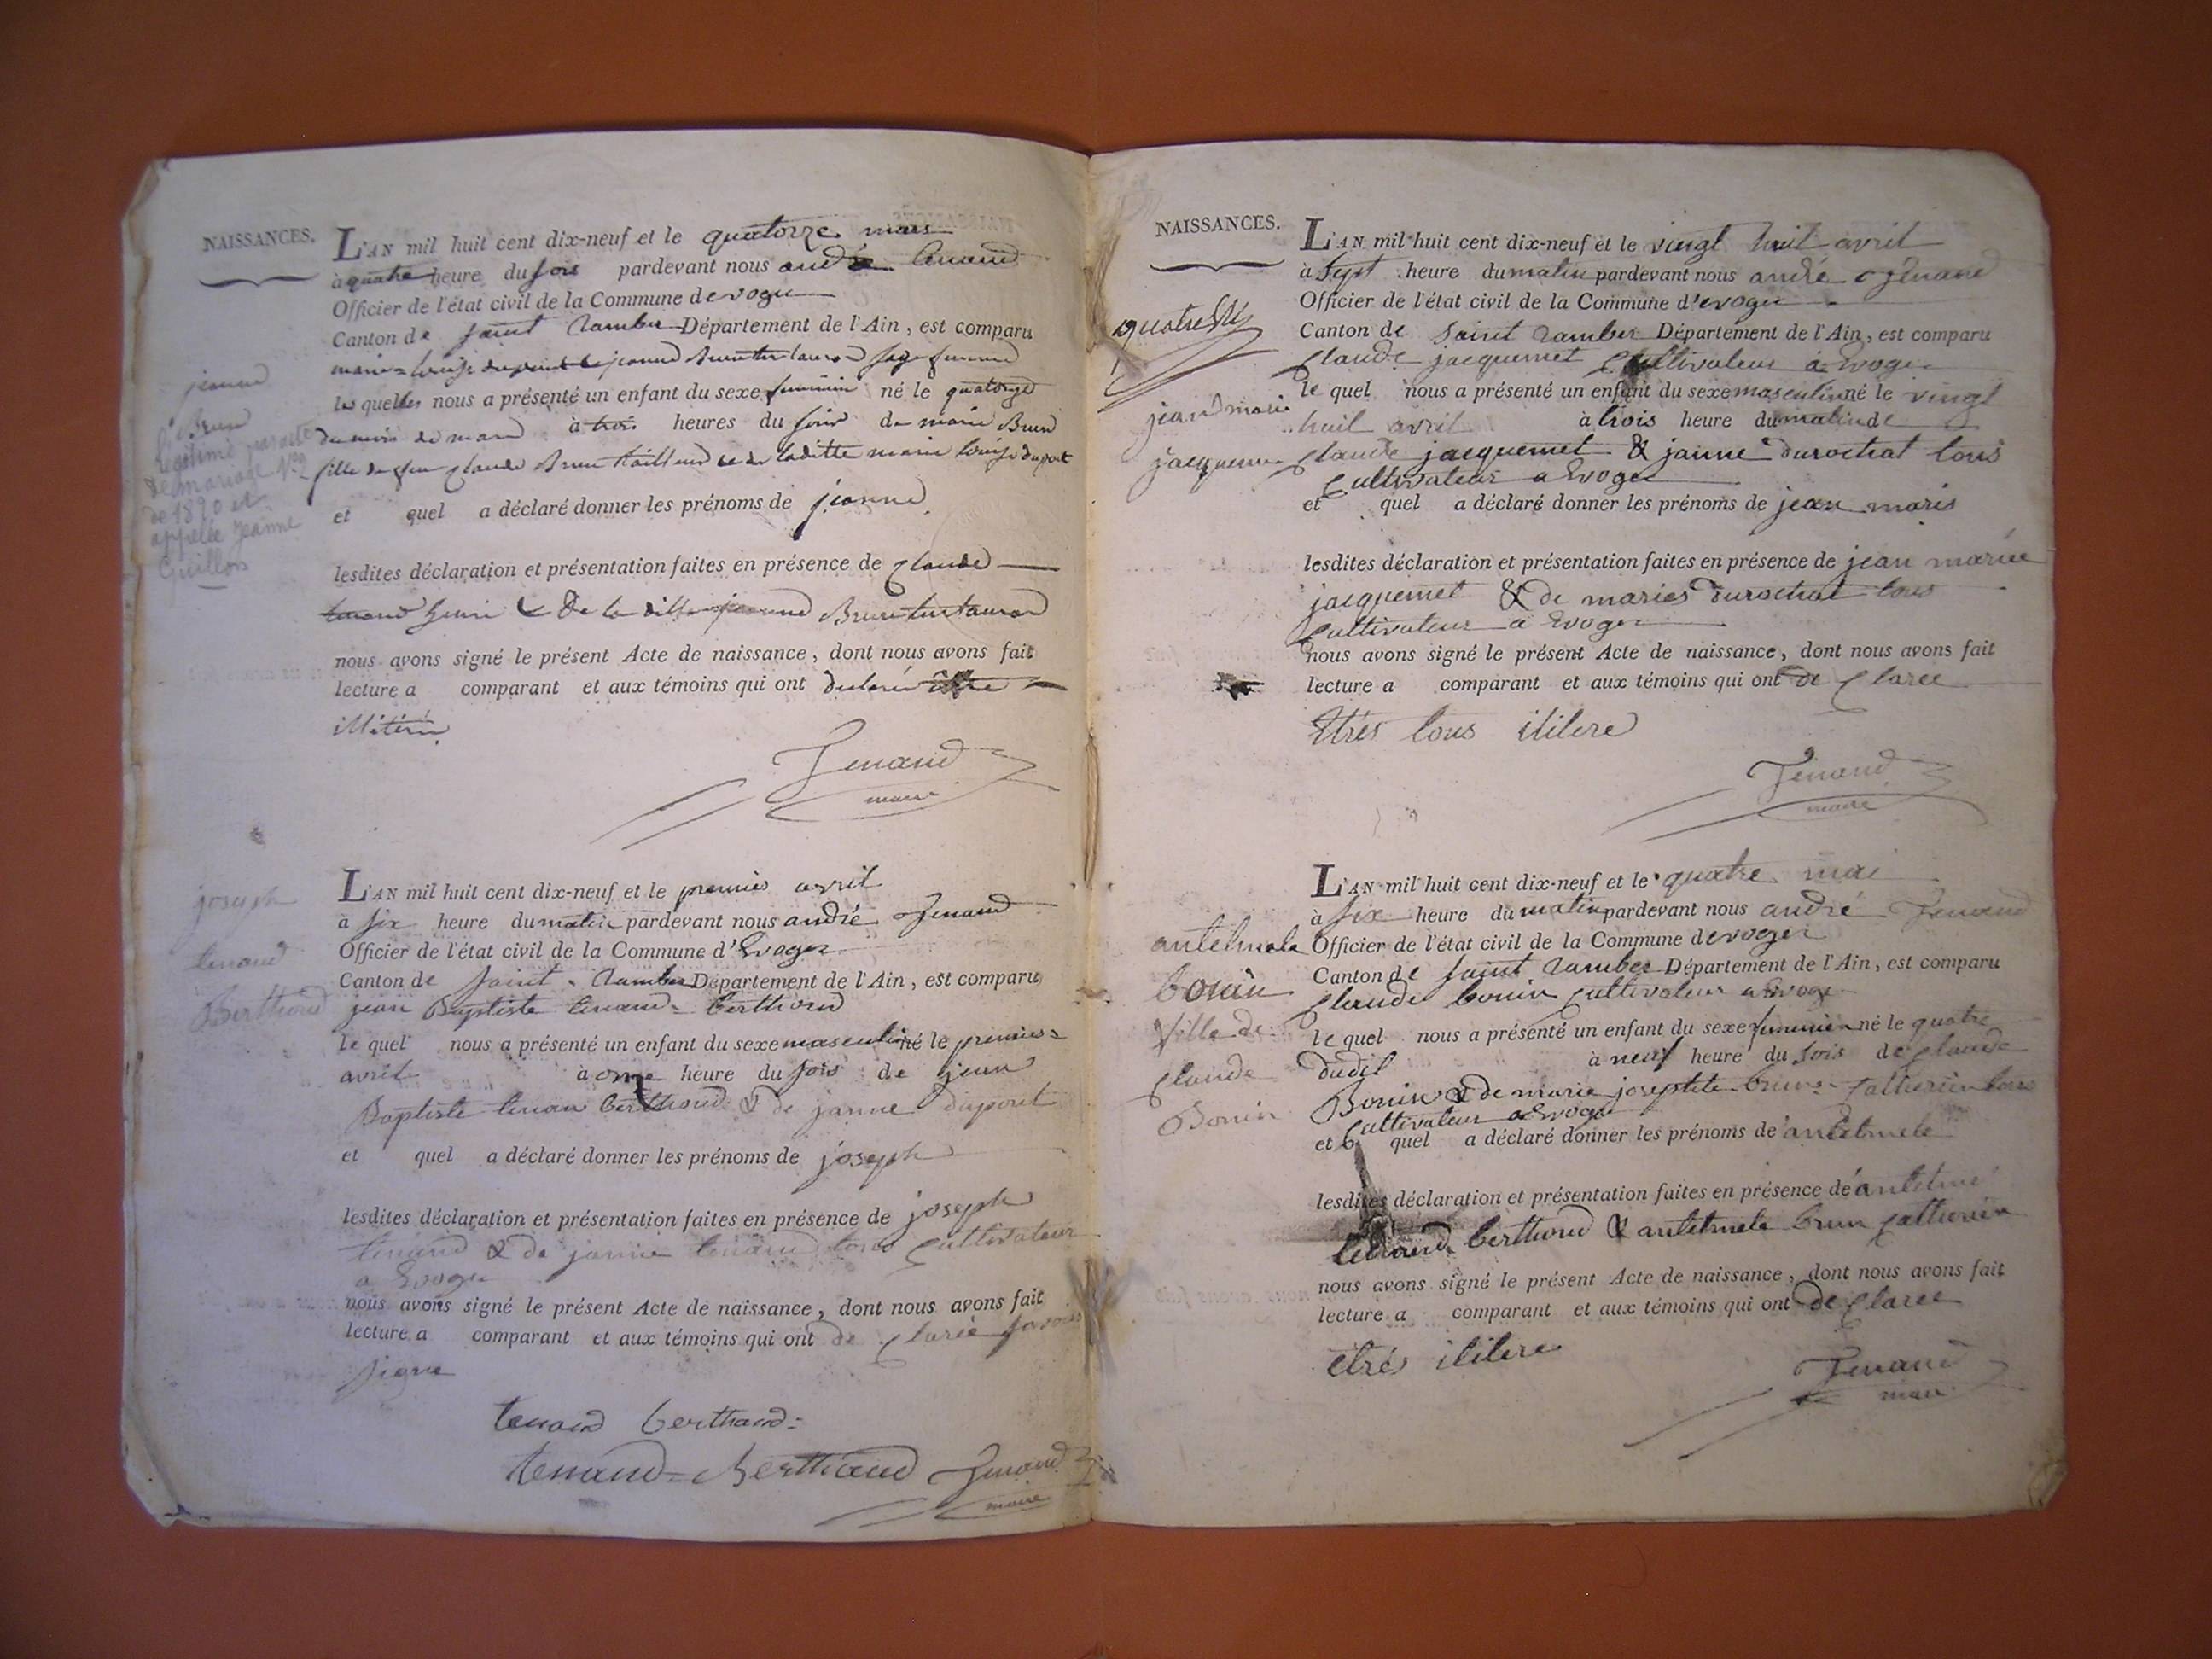 NAISSANCES.
L'AN mil huit cent dix-neuf et le quatorze mars
à quatre heure du soir pardevant nous andré tenand
Officier de l'état civil de la Commune d evoge
Canton de saint ramber Département de l'Ain, est comparu
marie louise dupont jeanne Brun sage femme
les quelles nous a présenté un enfant du sexe feminin né le quatorze
du mois de mars à trois heures du soir de marie Brun
fille de feu claude Brun tailleur et de laditte marie louise dupont
et quel a déclaré donner les prénoms de jeanne
lesdites déclaration et présentation faites en présence de claude
tenand & de la ditte jeanne Brun
nous avons signé le présent Acte de naissance, dont nous avons fait
lecture a comparant et aux témoins qui ont declaré être
illiteré
Tenand
maire
jeanne
Brun
légitimé par acte
de mariage
de 1820 et
appelée Jeanne
Guillon
L'AN mil huit cent dix-neuf et le premier avril
à six heure du matin pardevant nous andré Tenand
Officier de l'état civil de la Commune d'Evoges
Canton de saint ramber Département de l'Ain, est comparu
jean Baptiste tenand berthoud
le quel nous a présenté un enfant du sexe masculin né le premier
avril à onze heure du soir de jean
Baptiste tenan berthoud & de janne dupont
et quel a déclaré donner les prénoms de joseph
lesdites déclaration et présentation faites en présence de joseph
tenand & de janne tenand tous cultivateur
a Evoge
nous avons signé le présent Acte de naissance, dont nous avons fait
lecture a comparant et aux témoins qui ont de clarée savoir
signe
tenand berthaud
tenand=Berthaud Tenand
maire
joseph
tenand
Berthoud
NAISSANCES.
L'AN mil huit cent dix-neuf et le vingt huit avril
à sept heure du matin pardevant nous andré Tenand
Officier de l'état civil de la Commune d'evoge
Canton de saint ramber Département de l'Ain, est comparu
claude jacquemet cultivateur a Evoge
le quel nous a présenté un enfant du sexe masculin né le vingt
huit avril à trois heure du matin de
claude jacquemet & janne durochat tous
cultivateur a Evoge
et quel a déclaré donner les prénoms de jean marie
lesdites déclaration et présentation faites en présence de jean mariee
jacquemet & de maries durochat tous
cultivateur a Evoge
nous avons signé le présent Acte de naissance, dont nous avons fait
lecture a comparant et aux témoins qui ont de claree
Etrés tous ililere
Tenand
maire
jean marie
jacquemet
L'AN mil huit cent dix-neuf et le quatre mai
à six heure du matin pardevant nous andré Tenand
Officier de l'état civil de la Commune d evoge
Canton de saint ramber Département de l'Ain, est comparu
claude bonin cultivateur a Evoge
le quel nous a présenté un enfant du sexe feminien né le quatre
dudit à neuf heure du soir de claude
Bonin & de marie josephte brun catherin tous
cultivateur a Evoge
et le quel a déclaré donner les prénoms de antelmele
lesdites déclaration et présentation faites en présence de antelme
tenand berthoud & antelmele brun catherin
nous avons signé le présent Acte de naissance, dont nous avons fait
lecture a comparant et aux témoins qui ont de claree
etrés ililere
Tenand
maire
antelmele
bonin
fille de
claude
Bonin